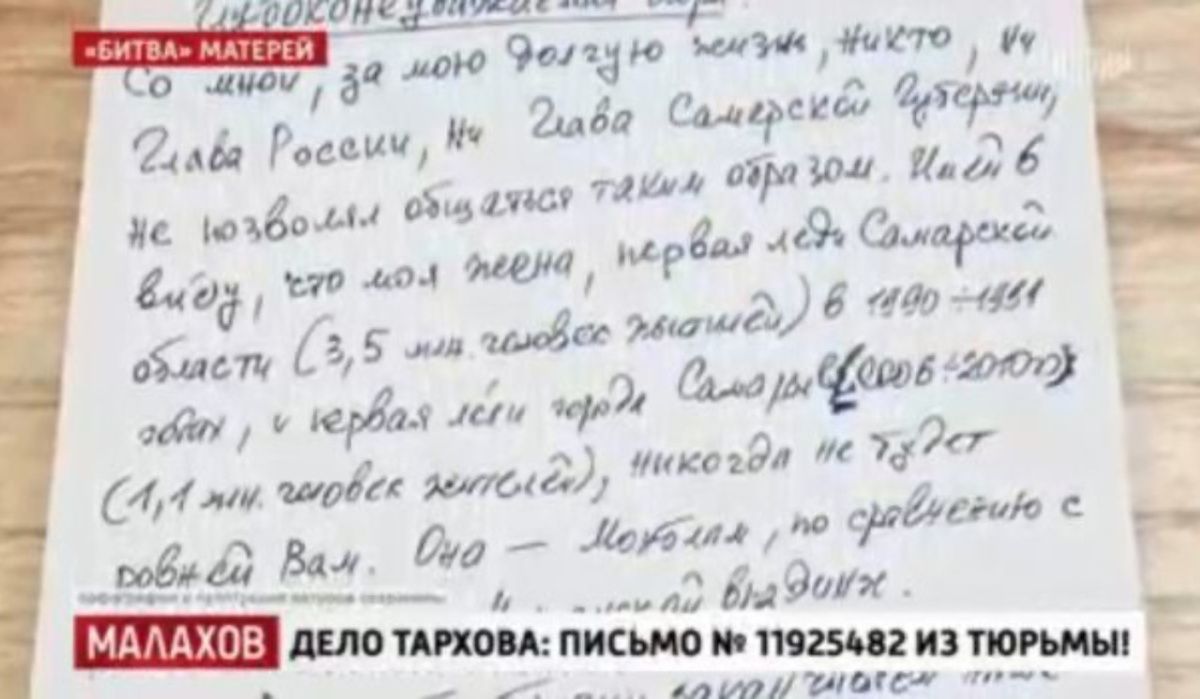 Глубоконеуважаемая
«БИТВА» МАТЕРЕЙ
Со мной, за мою долгую жизнь, никто, ни
Глава России, ни Глава Самарской Губернии,
не позволял общаться таким образом. Имей в
виду, что моя жена, первая леди Самарской
области (3,5 млн. человек жителей) в 1990÷1991
годах, и первая леди города Самары (2006÷2010)
(1,1 млн. человек жителей), никогда не будет
ровней Вам. Она — по сравнению с
орфография и пунктуация авторов сохранены
впадинж.
МАЛАХОВ ДЕЛО ТАРХОВА: ПИСЬМО № 11925482 ИЗ ТЮРЬМЫ!